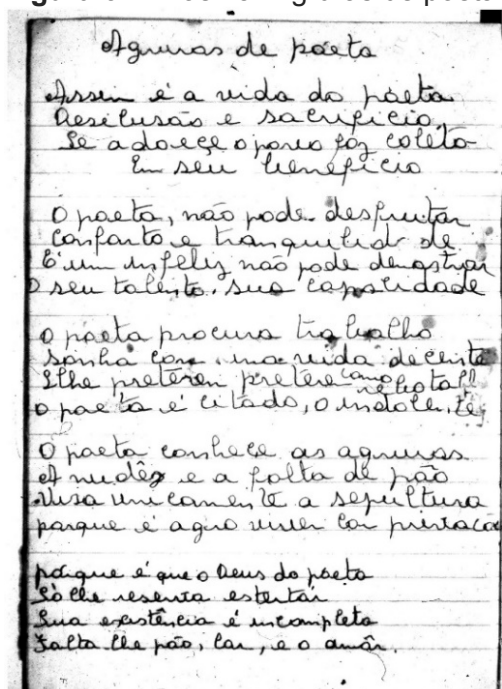 Agruras de poeta
Assim é a vida do poeta
Desilusão e sacrificio
Se adoeçe o povo faz coleta
Em seu beneficio
O poeta, não pode desfrutar
Conforto e tranquilidade
É um infeliz não pode demostrar
O seu talento. Sua capacidade
O poeta procura trabalho
Sonha com uma vida decente
Lhe preterem pretere como
O poeta é citado, o indolente,
O poeta conhece as agruras
A nudêz e a falta de pão
Visa unicamente a sepultura
porque é agro viver com
porque é que o Deus do poeta
Só lhe reserva
Sua existência é incompleta
Falta lhe pão, lar, e o amôr.